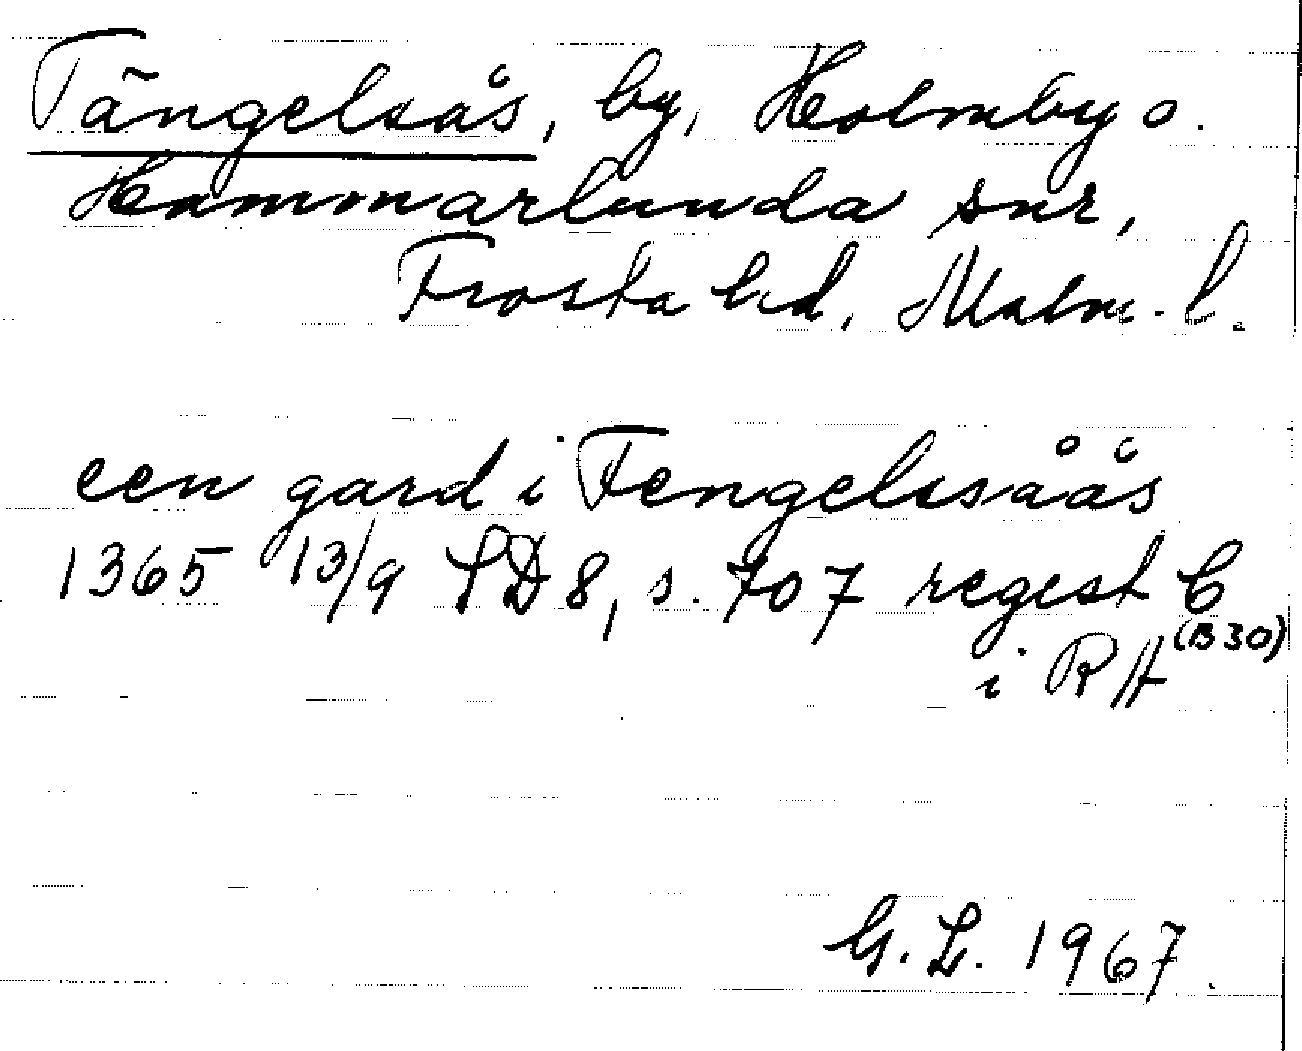 Tängelsås, by, Holmby o.
Hammarlunda snr,
Frosta hd, Malm. l.
een gard i Tengelssåås
1365 13/9 SD 8, s. 707 regest C
(B 30)
i RA
G. L. 1967.